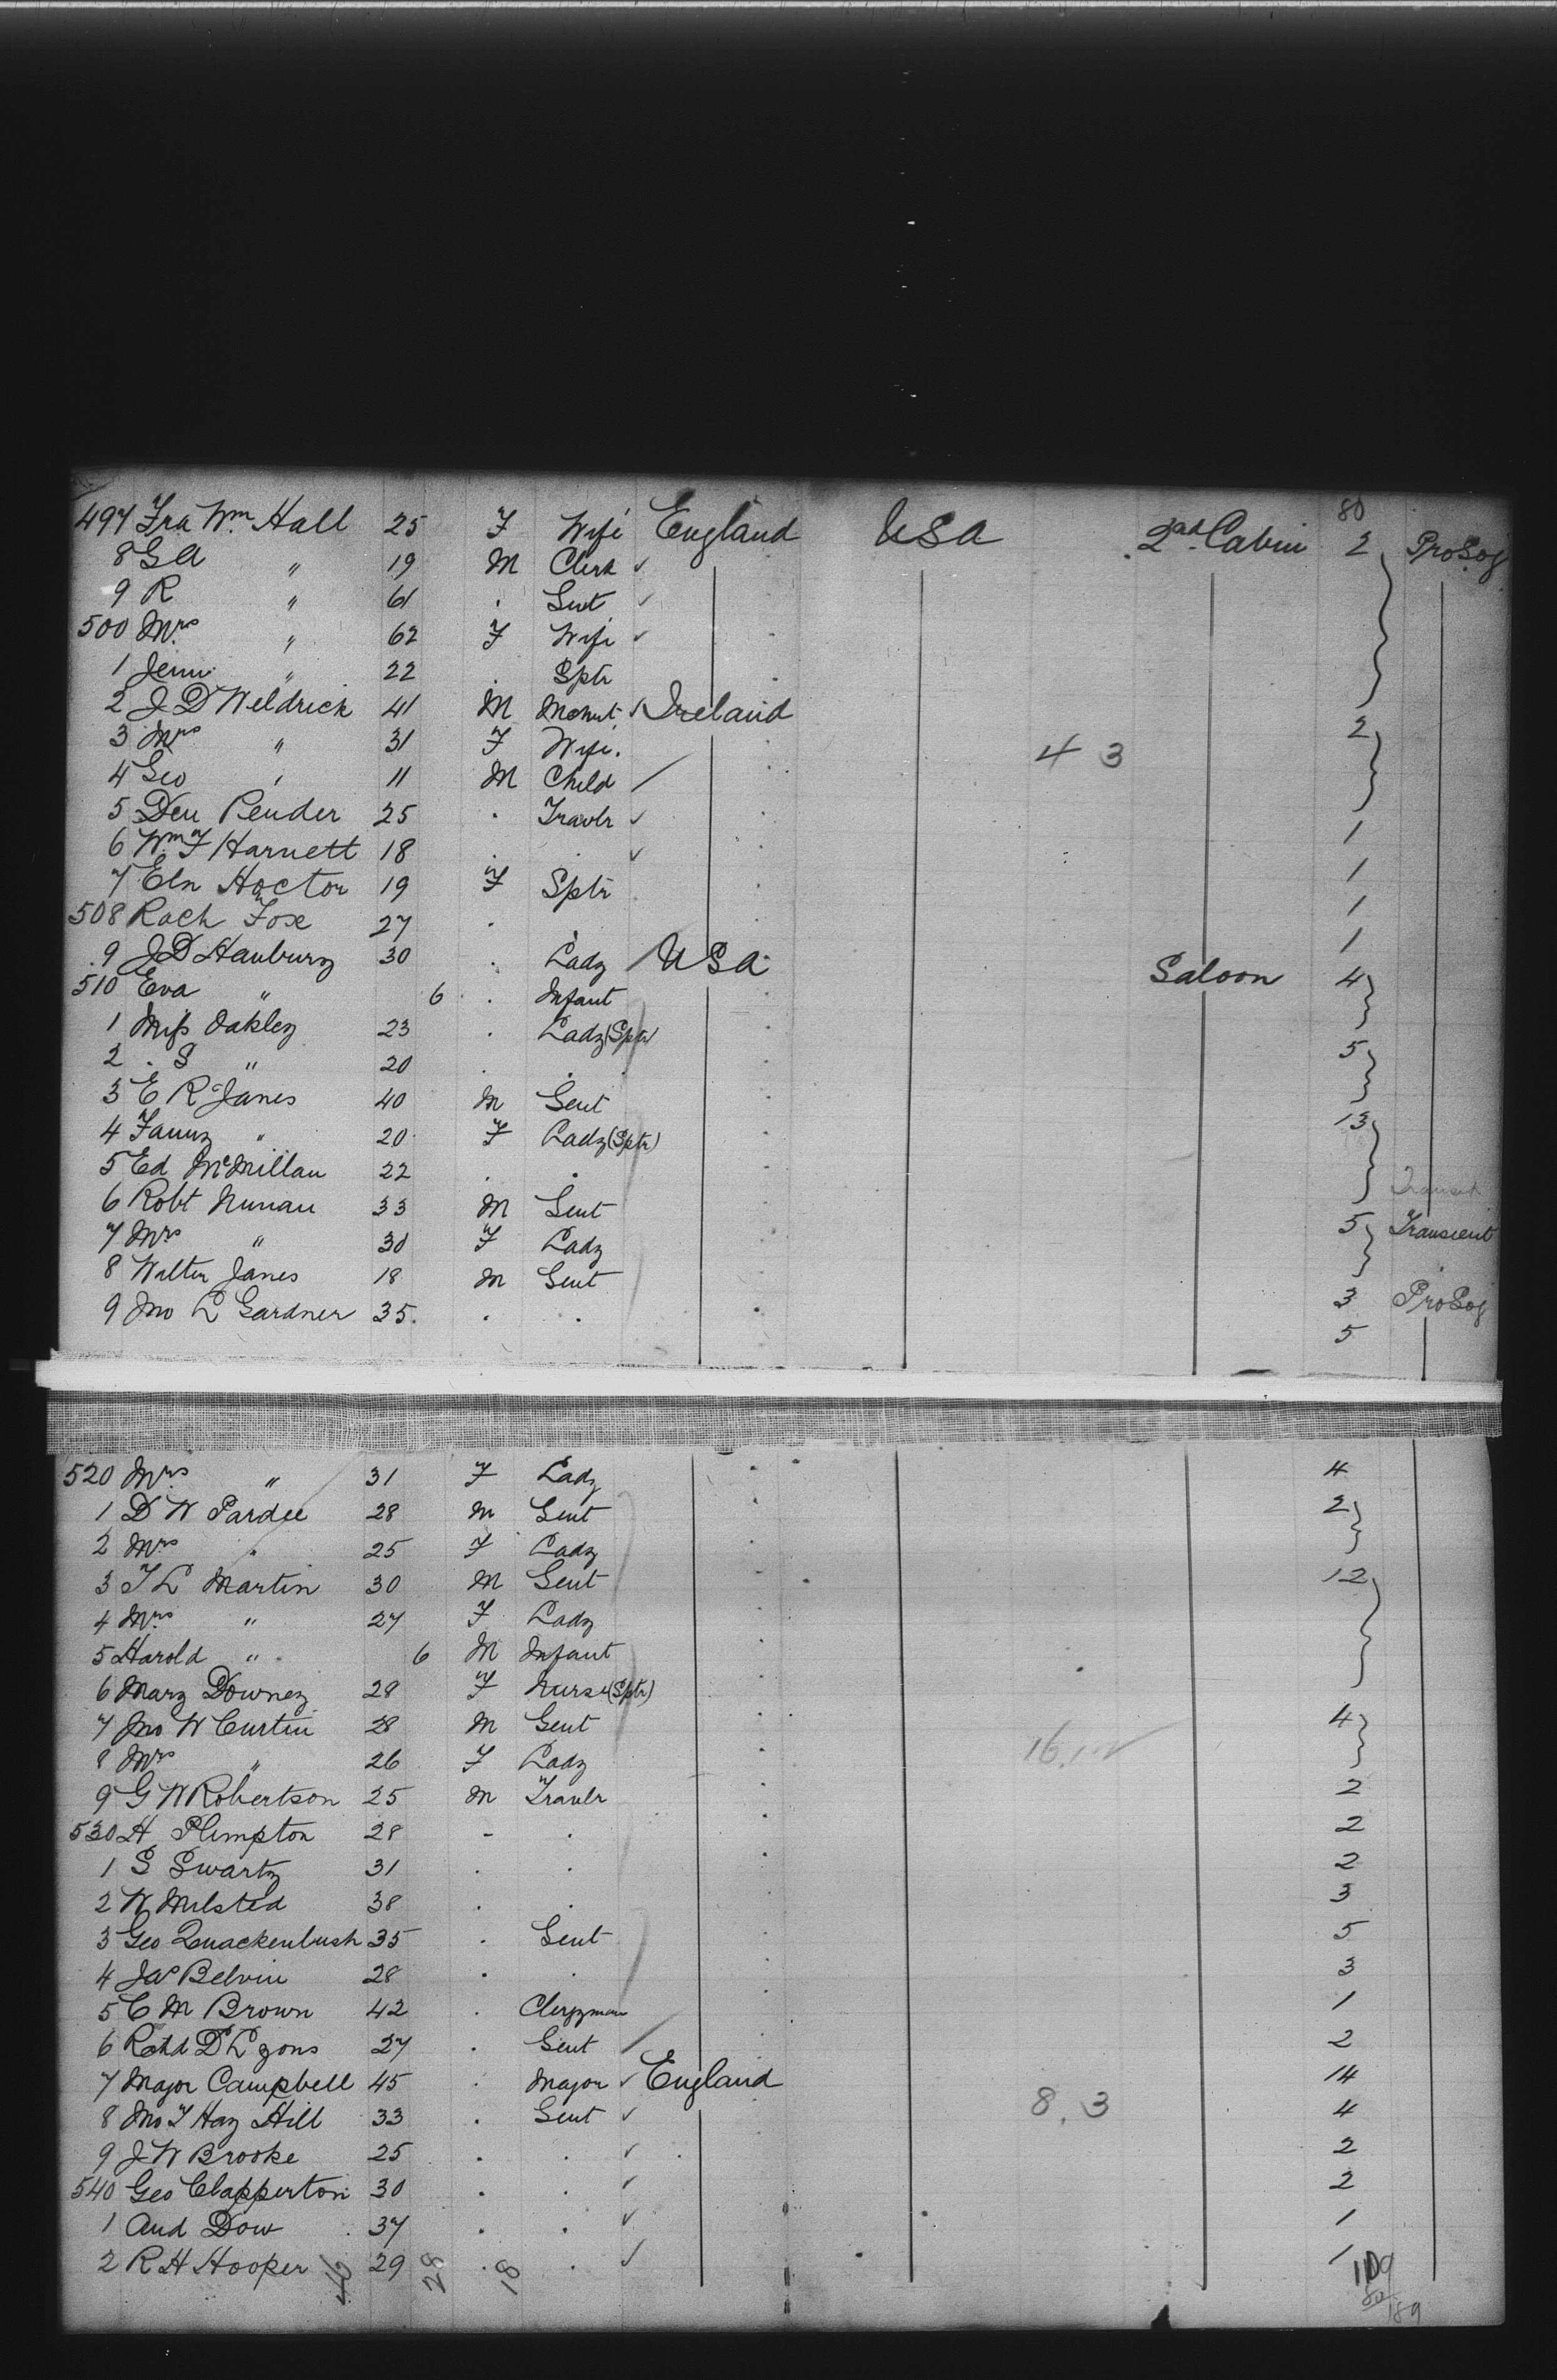 80
497 Fra Wm Hall 25 F Wife England USA 2nd Cabin 2 Pro Soj
8 G A " 19 M Clerk ✓
9 R " 61 . Gent ✓
500 Mrs " 62 F Wife ✓
1 " 22 . Sptr
2 J D Weldrick 41 M Mchnt ✓ Ireland
3 Mrs " 31 F Wife. 2
4 3
4 Geo " 11 M Child /
5 Den Render 25 . Travlr ✓
6 Wm F Harnett 18 . . ✓ 1
7 Eln Hoctor 19 F Sptr 1
508 Rach Fox 27 . . 1
9 J D Hanbury 30 . Lady / USA Saloon 1
510 Eva " 6 . Infant 4
1 Miss Oakley 23 . Lady (Sptr)
2 . S " 20 . . 5
3 E R Janes 40 M Gent
4 Fanny " 20 F Lady (Sptr) 13
5 Ed McMillan 22 . .
6 Robt Nunan 33 M Gent Transit
7 Mrs " 30 F Lady 5 Transient
8 Walter Janes 18 M Gent
9 Jno L Gardner 35. . . 3 Pro Soj
5
520 Mrs " 31 F Lady 4
1 D W Pardee 28 M Gent 2
2 Mrs " 25 F Lady
3 T L Martin 30 M Gent 12
4 Mrs " 27 F Lady
5 Harold " 6 M Infant
6 Mary Downey 28 F Nurse (Sptr)
7 Jno W Curtin 28 M Gent 4
8 Mrs " 26 F Lady
9 G W Robertson 25 M Travlr 2
530 H Plimpton 28 - . 2
1 S Swartz 31 . . 2
2 W Milsted 38 . . 3
3 Geo Quackenbush 35 . Gent 5
4 Jas Belvin 28 . . 3
5 C M Brown 42 . Clergyman 1
6 Rchd D Lyons 27 . Gent / 2
7 Major Campbell 45 . Major ✓ England 14
8 Jno T Hay Hill 33 . Gent ✓ 8. 3 4
9 J W Brooke 25 . . ✓ 2
540 Geo Clapperton 30 . . ✓ 2
1 And Dow 37 . . ✓ 1
2 R H Hooper 29 . . ✓ 1
46 28 18 109
80
189